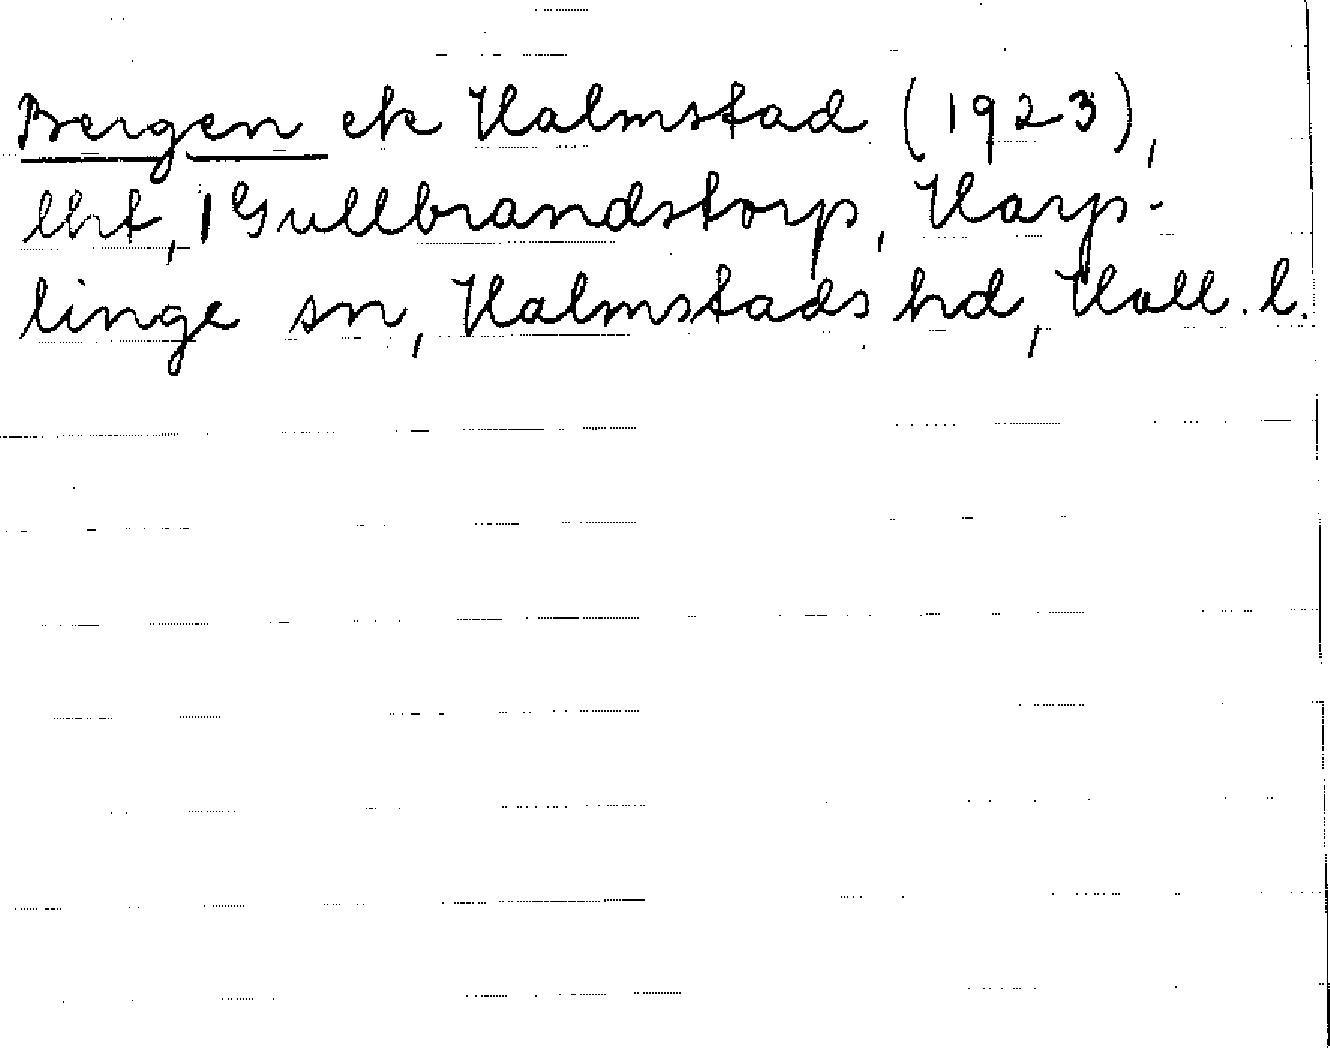 Bergen ek Halmstad (1923),
lht, 1 Gullbrandstorp, Harp-
linge sn, Halmstads hd, Hall. l.